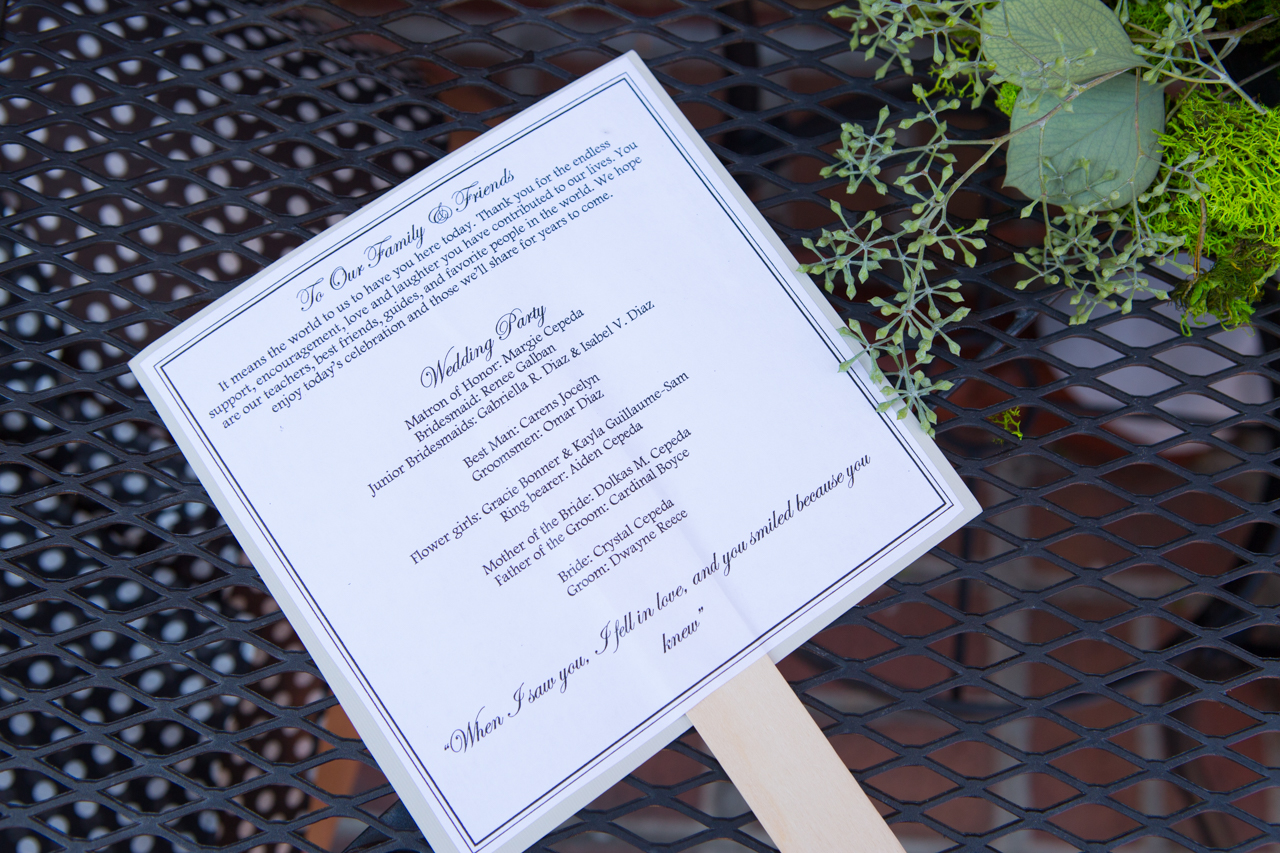 To Our Family & Friends
It means the world to us to have you here today. Thank you for the endless
support, encouragement, love and laughter you have contributed to our lives. You
are our teachers, best friends, guides, and favorite people in the world. We hope
enjoy today's celebration and those we'll share for years to come.
Wedding Party
Matron of Honor: Margie Cepeda
Bridesmaid: Renee Galban
Junior Bridesmaids: Gabriella R. Diaz & Isabel V. Diaz
Best Man: Carens Jocelyn
Groomsmen: Omar Diaz
Flower girls: Gracie Bonner & Kayla Guillaume-Sam
Ring bearer: Aiden Cepeda
Mother of the Bride: Dolkas M. Cepeda
Father of the Groom: Cardinal Boyce
Bride: Crystal Cepeda
Groom: Dwayne Reece
"When I saw you, I fell in love, and you smiled because you
knew"